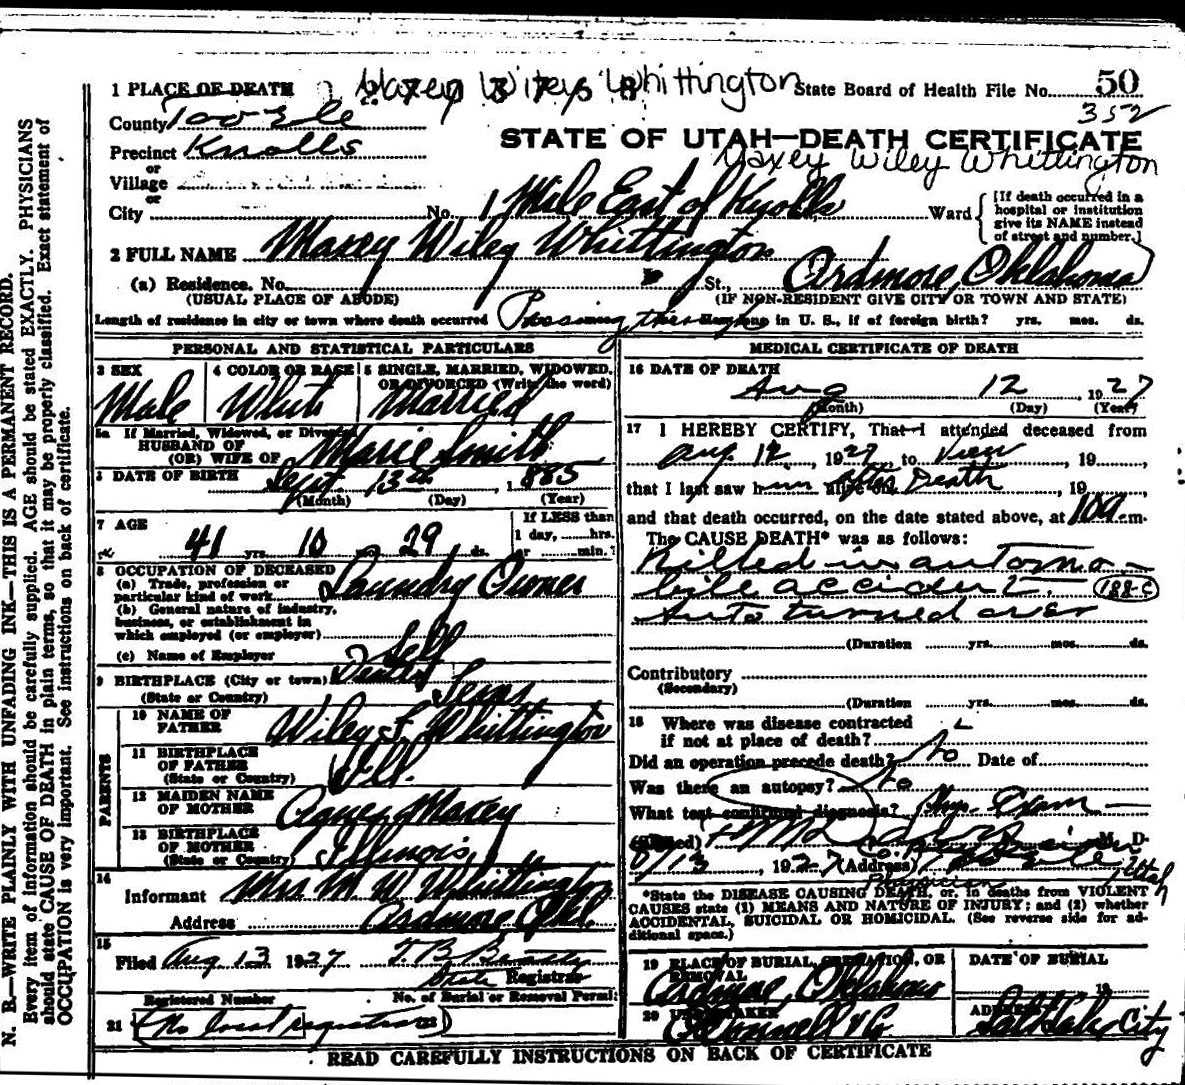 1 PLACE OF DEATH Maxey Wiley Whittington State Board of Health File No. 50
352
County Tooele
STATE OF UTAH—DEATH CERTIFICATE
Precinct Knolls
Maxey Wiley Whittington
or
Village
or
City No. 1 Mile East of Knolls Ward
[If death occurred in a hospital or institution give its NAME instead of street and number.]
2 FULL NAME Maxey Wiley Whittington
(a) Residence. No. St., Ardmore, Oklahoma
(USUAL PLACE OF ABODE) (IF NON-RESIDENT GIVE CITY OR TOWN AND STATE)
Length of residence in city or town where death occurred Passing through in U. S., if of foreign birth? yrs. mos. ds.
PERSONAL AND STATISTICAL PARTICULARS
3 SEX 4 COLOR OR RACE 5 SINGLE, MARRIED, WIDOWED,
OR DIVORCED (Write the word)
Male White Married
5a If Married, Widowed, or Divorced
HUSBAND OF
(OR) WIFE OF Marie Smith
DATE OF BIRTH Sept. 13th 1885
(Month) (Day) (Year)
7 AGE If LESS than
1 day, hrs.
41 yrs. 10 29 ds. or min.?
8 OCCUPATION OF DECEASED
(a) Trade, profession or
particular kind of work Laundry Owner
(b) General nature of industry,
business, or establishment in
which employed (or employer)
(c) Name of Employer Self
9 BIRTHPLACE (City or town)
(State or Country)
PARENTS
10 NAME OF
FATHER Wiley F. Whittington
11 BIRTHPLACE
OF FATHER
(State or Country) Ill.
12 MAIDEN NAME
OF MOTHER Agnes Maxey
13 BIRTHPLACE
OF MOTHER
(State or Country) Illinois
14
Informant Mrs M. W. Whittington
Address Ardmore Okl.
15
Filed Aug 13 1927 T. B. Beatty
State Registrar
Registered Number No. of Burial or Removal Permit
21 (No local registrar) 22
MEDICAL CERTIFICATE OF DEATH
16 DATE OF DEATH
Aug 12, 1927
(Month) (Day) (Year)
17 I HEREBY CERTIFY, That I attended deceased from
Aug 12, 1927, to View, 19
that I last saw him alive on After Death, 19
and that death occurred, on the date stated above, at 10 a m.
The CAUSE DEATH* was as follows:
Killed in automo-
bile accident. 188-c
Auto turned over
(Duration yrs. mos. ds.
Contributory
(Secondary)
(Duration yrs. mos. ds.
18 Where was disease contracted
if not at place of death?
Did an operation precede death? No Date of
Was there an autopsy? No
What test confirmed diagnosis? Phy. Exam
(Signed) M. D.
8/13, 1927 (Address) Tooele Utah
*State the DISEASE CAUSING DEATH, or, in deaths from VIOLENT
CAUSES state (1) MEANS AND NATURE OF INJURY; and (2) whether
ACCIDENTAL, SUICIDAL OR HOMICIDAL. (See reverse side for ad-
ditional space.)
19 PLACE OF BURIAL, CREMATION, OR
REMOVAL DATE OF BURIAL
Ardmore, Oklahoma 19
20 UNDERTAKER ADDRESS
O'Donnell & Co. Salt Lake City
READ CAREFULLY INSTRUCTIONS ON BACK OF CERTIFICATE
N. B.—WRITE PLAINLY WITH UNFADING INK—THIS IS A PERMANENT RECORD.
Every item of information should be carefully supplied. AGE should be stated EXACTLY. PHYSICIANS
should state CAUSE OF DEATH in plain terms, so that it may be properly classified. Exact statement of
OCCUPATION is very important. See instructions on back of certificate.